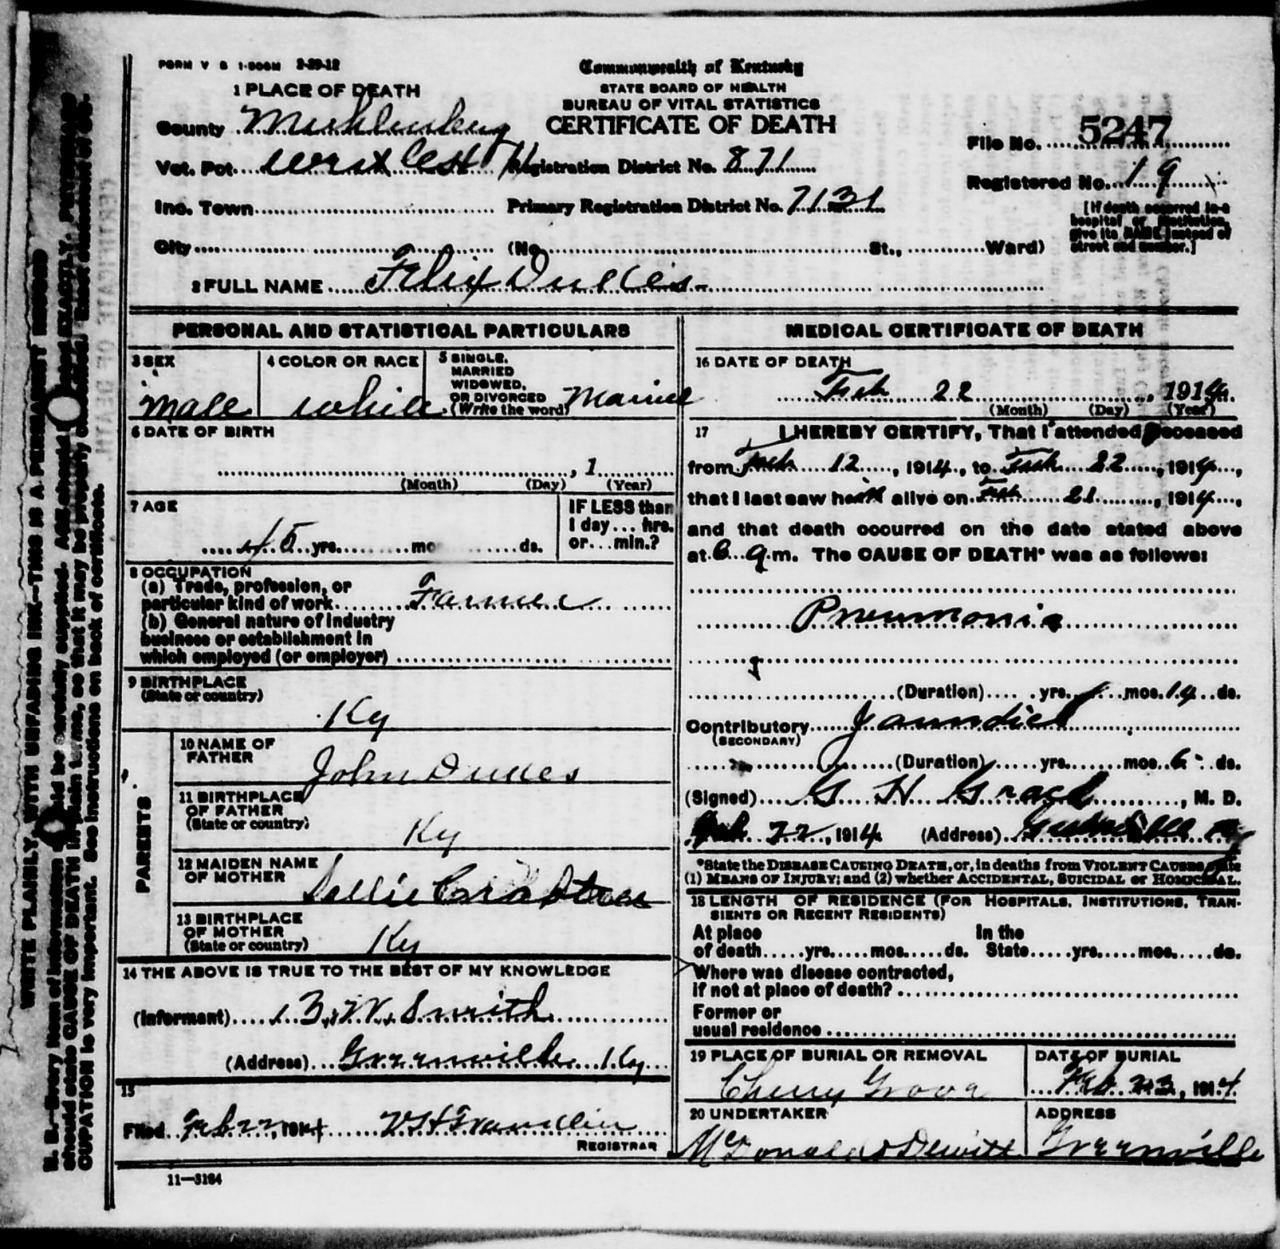 FORM V S 1-500M 2-29-12
Commonwealth of Kentucky
STATE BOARD OF HEALTH
BUREAU OF VITAL STATISTICS
CERTIFICATE OF DEATH
1 PLACE OF DEATH
County Muhlenberg
Vot. Pct. West
Inc. Town
City (No. St., Ward)
Registration District No. 871
Primary Registration District No. 7131
File No. 5247
Registered No. 19
[If death occurred in a
hospital or institution,
give its NAME instead of
street and number.]
2 FULL NAME Felix Dukes
PERSONAL AND STATISTICAL PARTICULARS
3 SEX
male
4 COLOR OR RACE
white
5 SINGLE,
MARRIED
WIDOWED,
OR DIVORCED
(Write the word) Married
6 DATE OF BIRTH
, 1
(Month) (Day) (Year)
7 AGE
45 yrs. mo ds.
IF LESS than
1 day ... hrs.
or ... min.?
8 OCCUPATION
(a) Trade, profession, or
particular kind of work Farmer
(b) General nature of industry
business or establishment in
which employed (or employer)
9 BIRTHPLACE
(State or country)
Ky
PARENTS
10 NAME OF
FATHER
John Dukes
11 BIRTHPLACE
OF FATHER
(State or country)
Ky
12 MAIDEN NAME
OF MOTHER
Sallie Crabtree
13 BIRTHPLACE
OF MOTHER
(State or country)
Ky
14 THE ABOVE IS TRUE TO THE BEST OF MY KNOWLEDGE
(Informant) B. W. Smith
(Address) Greenville Ky
15
Filed Feb 22, 1914
REGISTRAR
11—3184
MEDICAL CERTIFICATE OF DEATH
16 DATE OF DEATH
Feb 22, 1914
(Month) (Day) (Year)
17 I HEREBY CERTIFY, That I attended deceased
from Feb 12, 1914, to Feb 22, 1914,
that I last saw him alive on Feb 21, 1914,
and that death occurred on the date stated above
at 6 a.m. The CAUSE OF DEATH* was as follows:
Pneumonia
(Duration) yrs. mos. 14 ds.
Contributory Jaundice
(SECONDARY)
(Duration) yrs. mos. 6 ds.
(Signed) G H Grace, M. D.
Feb 22, 1914 (Address) Greenville Ky
*State the DISEASE CAUSING DEATH, or, in deaths from VIOLENT CAUSES state
(1) MEANS OF INJURY; and (2) whether ACCIDENTAL, SUICIDAL or HOMICIDAL.
18 LENGTH OF RESIDENCE (FOR HOSPITALS, INSTITUTIONS, TRAN-
SIENTS OR RECENT RESIDENTS)
At place In the
of death yrs. mos. ds. State yrs. mos. ds.
Where was disease contracted,
if not at place of death?
Former or
usual residence
19 PLACE OF BURIAL OR REMOVAL
Cherry Grove
DATE OF BURIAL
Feb 23, 1914
20 UNDERTAKER
McDonald & Dewitt
ADDRESS
Greenville
WRITE PLAINLY, WITH UNFADING INK—THIS IS A PERMANENT RECORD
N. B.—Every item of information should be carefully supplied. AGE should be stated EXACTLY. PHYSICIANS
should state CAUSE OF DEATH in plain terms, so that it may be properly classified. Exact statement of OC-
CUPATION is very important. See instructions on back of certificate.